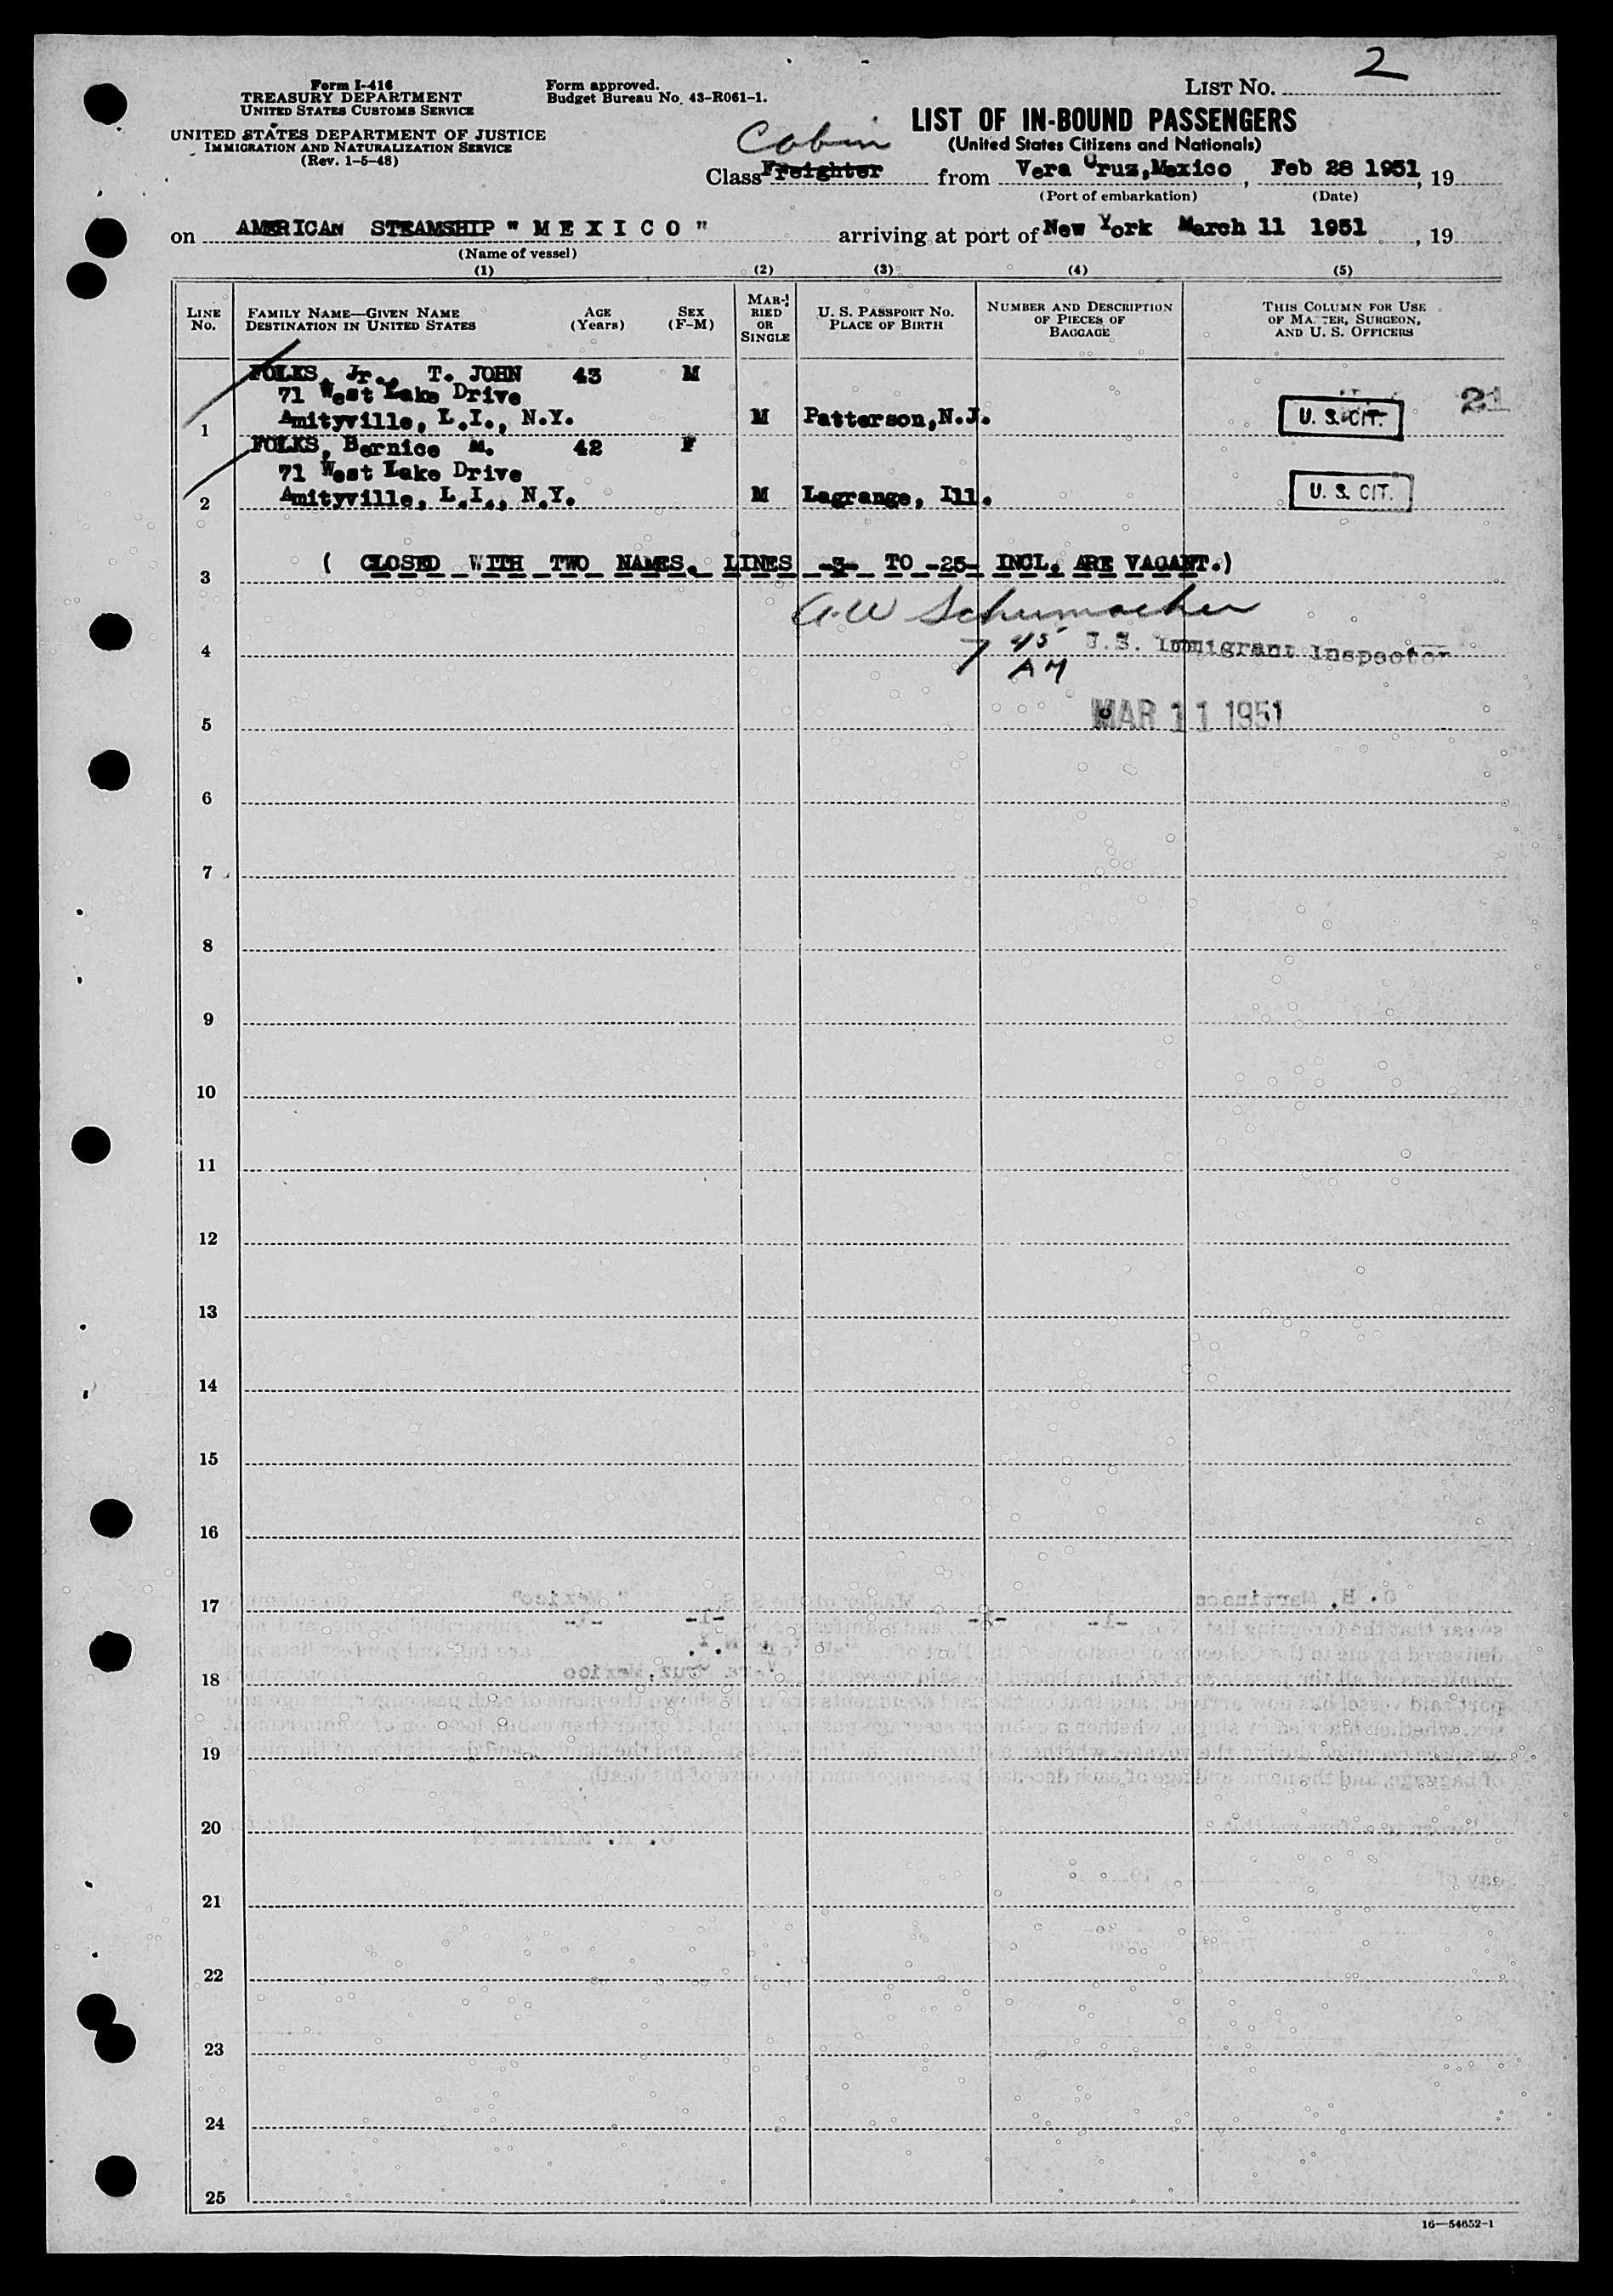 2
Form I-416
TREASURY DEPARTMENT
UNITED STATES CUSTOMS SERVICE
UNITED STATES DEPARTMENT OF JUSTICE
IMMIGRATION AND NATURALIZATION SERVICE
(Rev. 1-5-48)
Form approved.
Budget Bureau No. 43-R061-1.
LIST NO.
LIST OF IN-BOUND PASSENGERS
(United States Citizens and Nationals)
Cabin
Class Freighter from Vera Cruz, Mexico, Feb 28 1951, 19
(Port of embarkation) (Date)
on AMERICAN STEAMSHIP " M E X I C O " arriving at port of New York March 11 1951, 19
(Name of vessel)
(1) (2) (3) (4) (5)
LINE NO.
FAMILY NAME—GIVEN NAME
DESTINATION IN UNITED STATES
AGE (Years)
SEX (F-M)
MARRIED OR SINGLE
U. S. PASSPORT NO.
PLACE OF BIRTH
NUMBER AND DESCRIPTION
OF PIECES OF
BAGGAGE
THIS COLUMN FOR USE
OF MASTER, SURGEON,
AND U. S. OFFICERS
FOLKS, Jr., T. JOHN 43 M
71 West Lake Drive
1 Amityville, L.I., N.Y. M Patterson, N.J. U. S. CIT. 21
FOLKS, Bernice M. 42 F
71 West Lake Drive
2 Amityville, L.I., N.Y. M Lagrange, Ill. U. S. CIT.
3 ( CLOSED WITH TWO NAMES. LINES -3- TO -25- INCL. ARE VACANT.)
A. W Schumacher
4 7 45 AM U.S. Immigrant Inspector
5 MAR 11 1951
6
7
8
9
10
11
12
13
14
15
16
17
18
19
20
21
22
23
24
25
16—54652-1